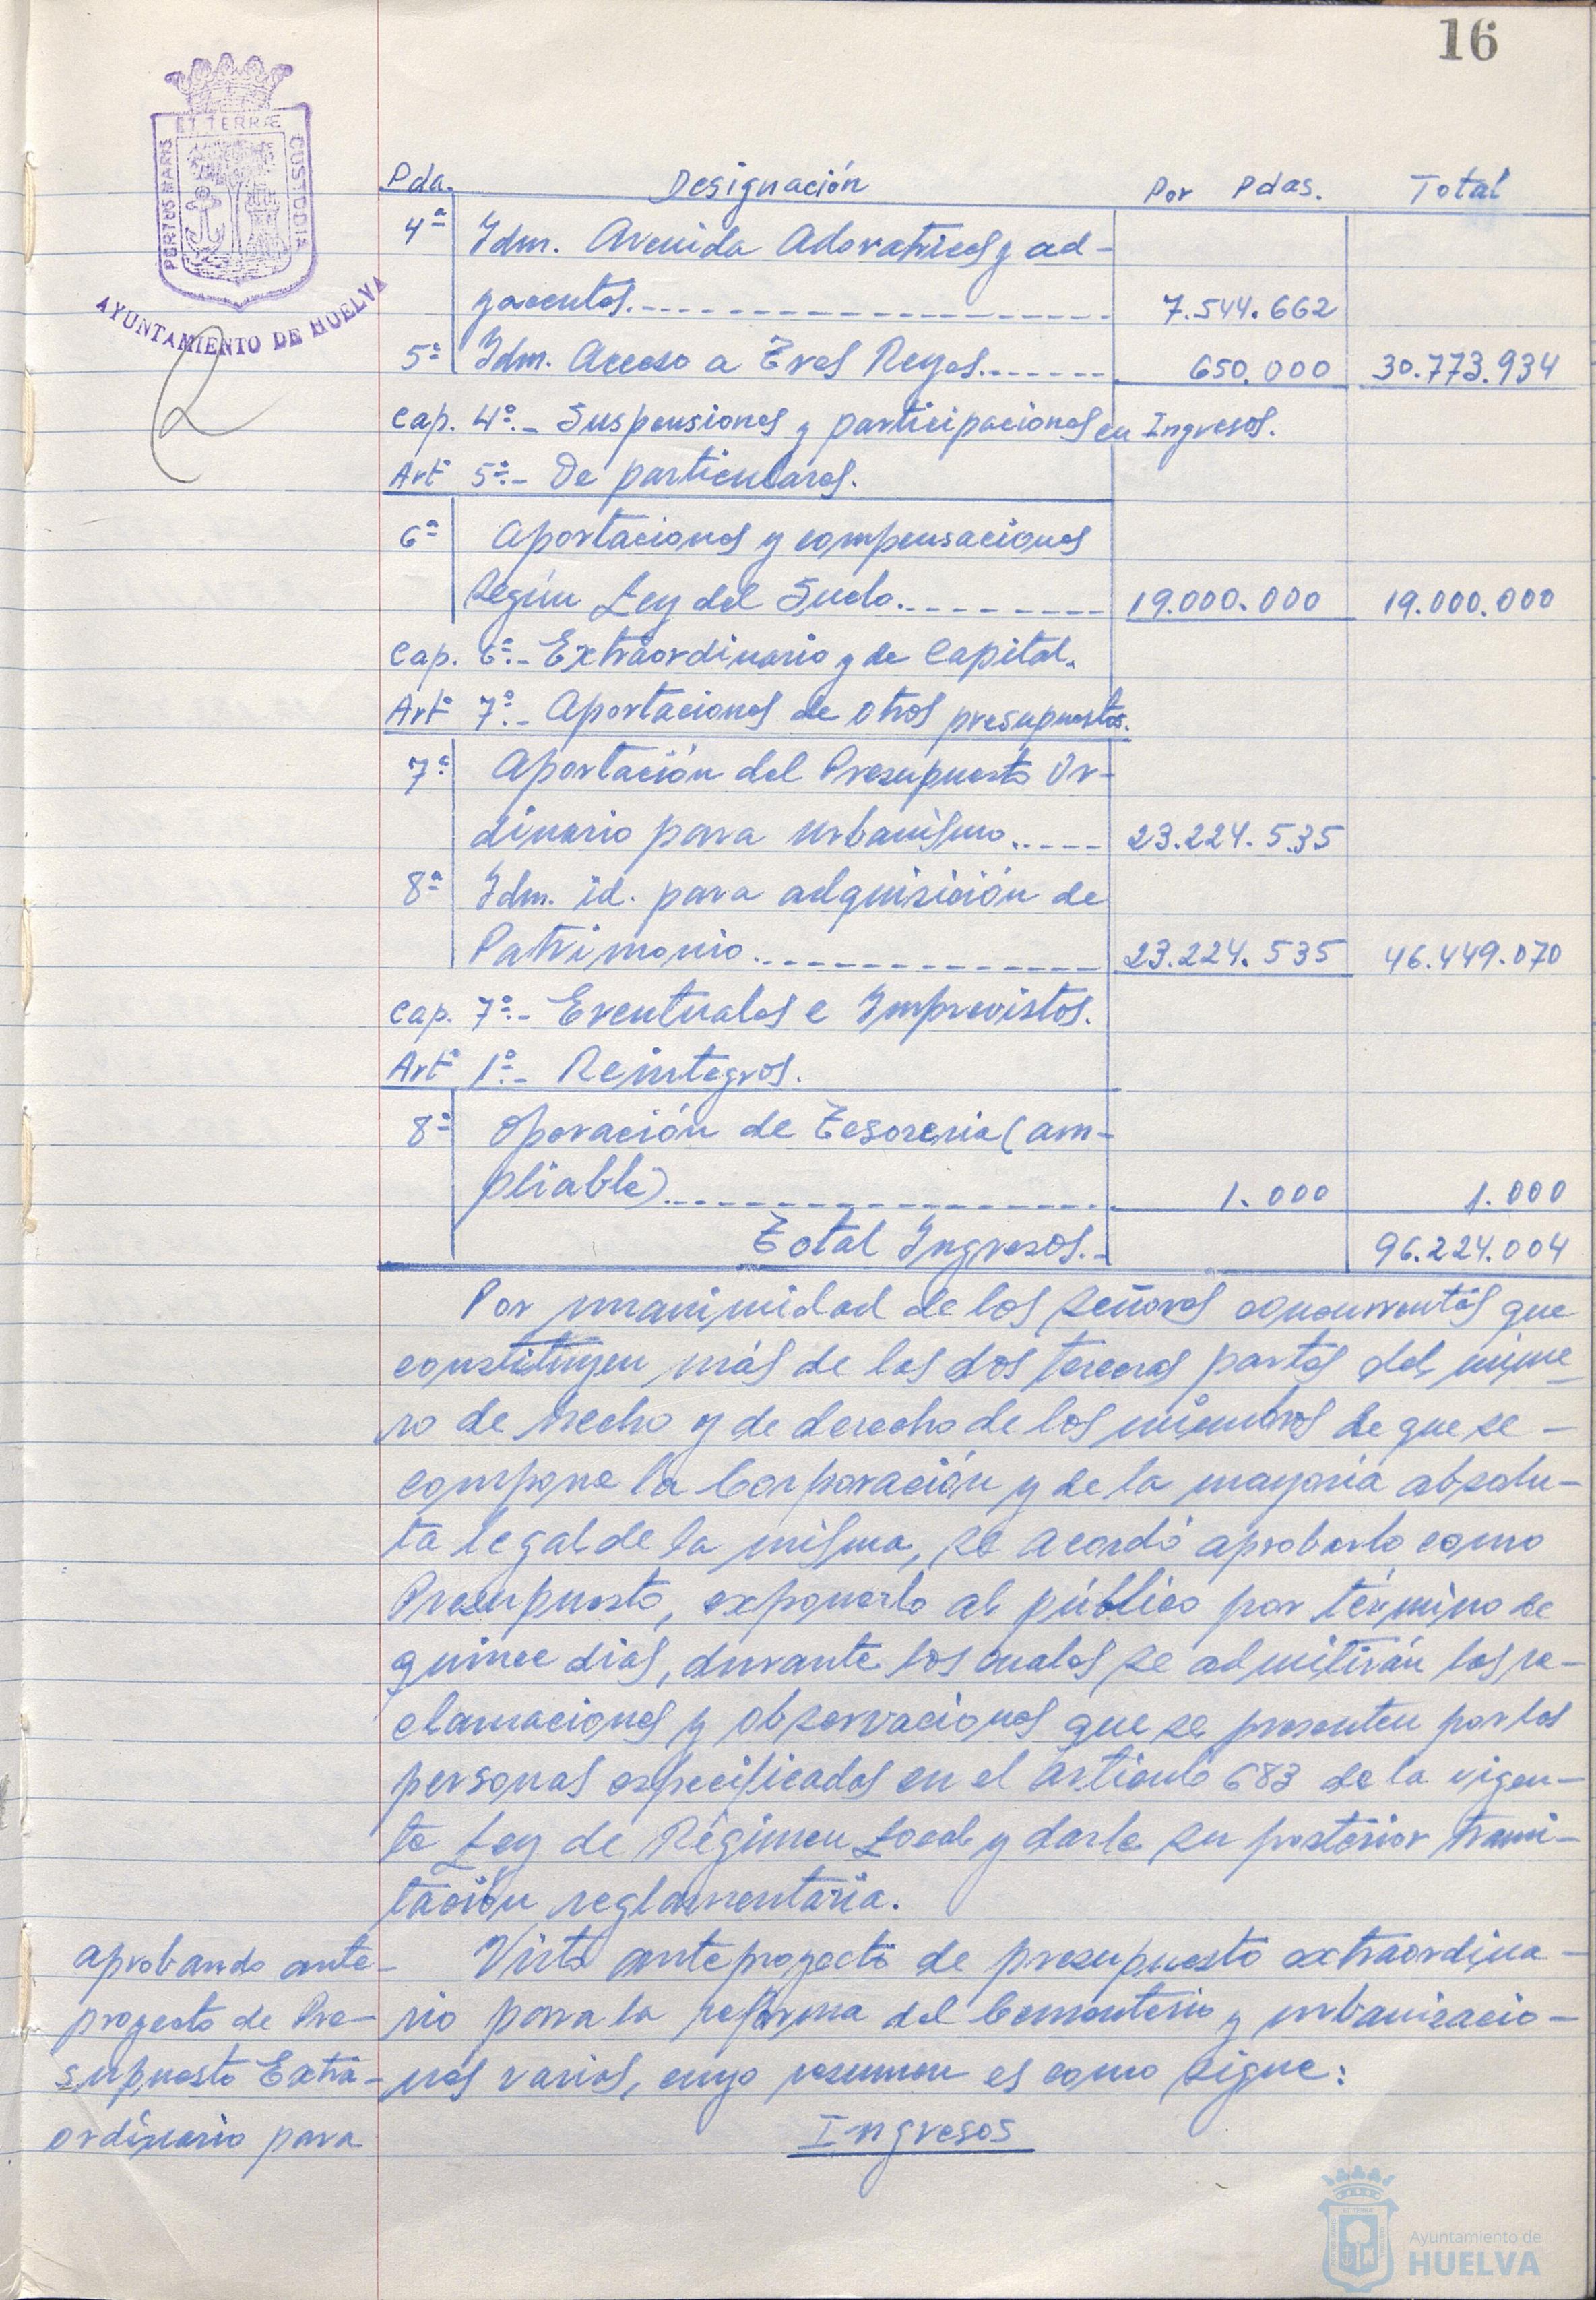 16
ET TERRÆ
PORTUS MARIS
CUSTODIA
AYUNTAMIENTO DE HUELVA
Pda. Designación Por Pdas. Total
4ª Idm. Avenida Adoratrices y ad-
yacentes. 7.544.662
5ª Idm. Acceso a Tres Reyes. 650.000 30.773.934
Cap. 4º.- Suspensiones y participaciones en Ingresos.
Artº 5º.- De particulares.
6ª Aportaciones y compensaciones
Según Ley del Suelo. 19.000.000 19.000.000
Cap. 6º.- Extraordinario y de Capital.
Artº 7º.- Aportaciones de otros presupuestos.
7ª Aportación del Presupuesto Or-
dinario para urbanismo. 23.224.535
8ª Idm. id. para adquisición de
Patrimonio. 23.224.535 46.449.070
Cap. 7º.- Eventuales e Imprevistos.
Artº 1º.- Reintegros.
8ª Operación de Tesoreria (am-
pliable) 1.000 1.000
Total Ingresos.- 96.224.004
Por unanimidad de los señores concurrentes que
constituyen más de las dos terceras partes del núme-
ro de hecho y de derecho de los miembros de que se -
compone la Corporación y de la mayoria absolu-
ta legal de la misma, se acordó aprobarlo como
Presupuesto, exponerlo al público por término de
quince dias, durante los cuales se admitirán las re-
clamaciones y observaciones que se presenten por las
personas especificadas en el artículo 683 de la vigen-
te Ley de Régimen Local y darle su posterior trami-
tación reglamentaria.
Aprobando ante-
proyecto de Pre-
supuesto Extra-
ordinario para
Visto anteproyecto de presupuesto extraordina-
rio para la reforma del Cementerio y urbanizacio-
nes varias, cuyo resumen es como sigue:
Ingresos
Ayuntamiento de
HUELVA